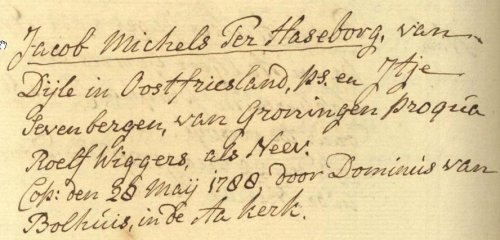 Jacob Michels Ter Haseborg, van
Dijle in Oostfriesland, ps. en Itje
Sevenbergen, van Groningen proqūa
Roelf Wiggers, als Neev.
Cop: den 26 Maij 1788, door Dominus van
Bolhuis, in de Aa kerk.